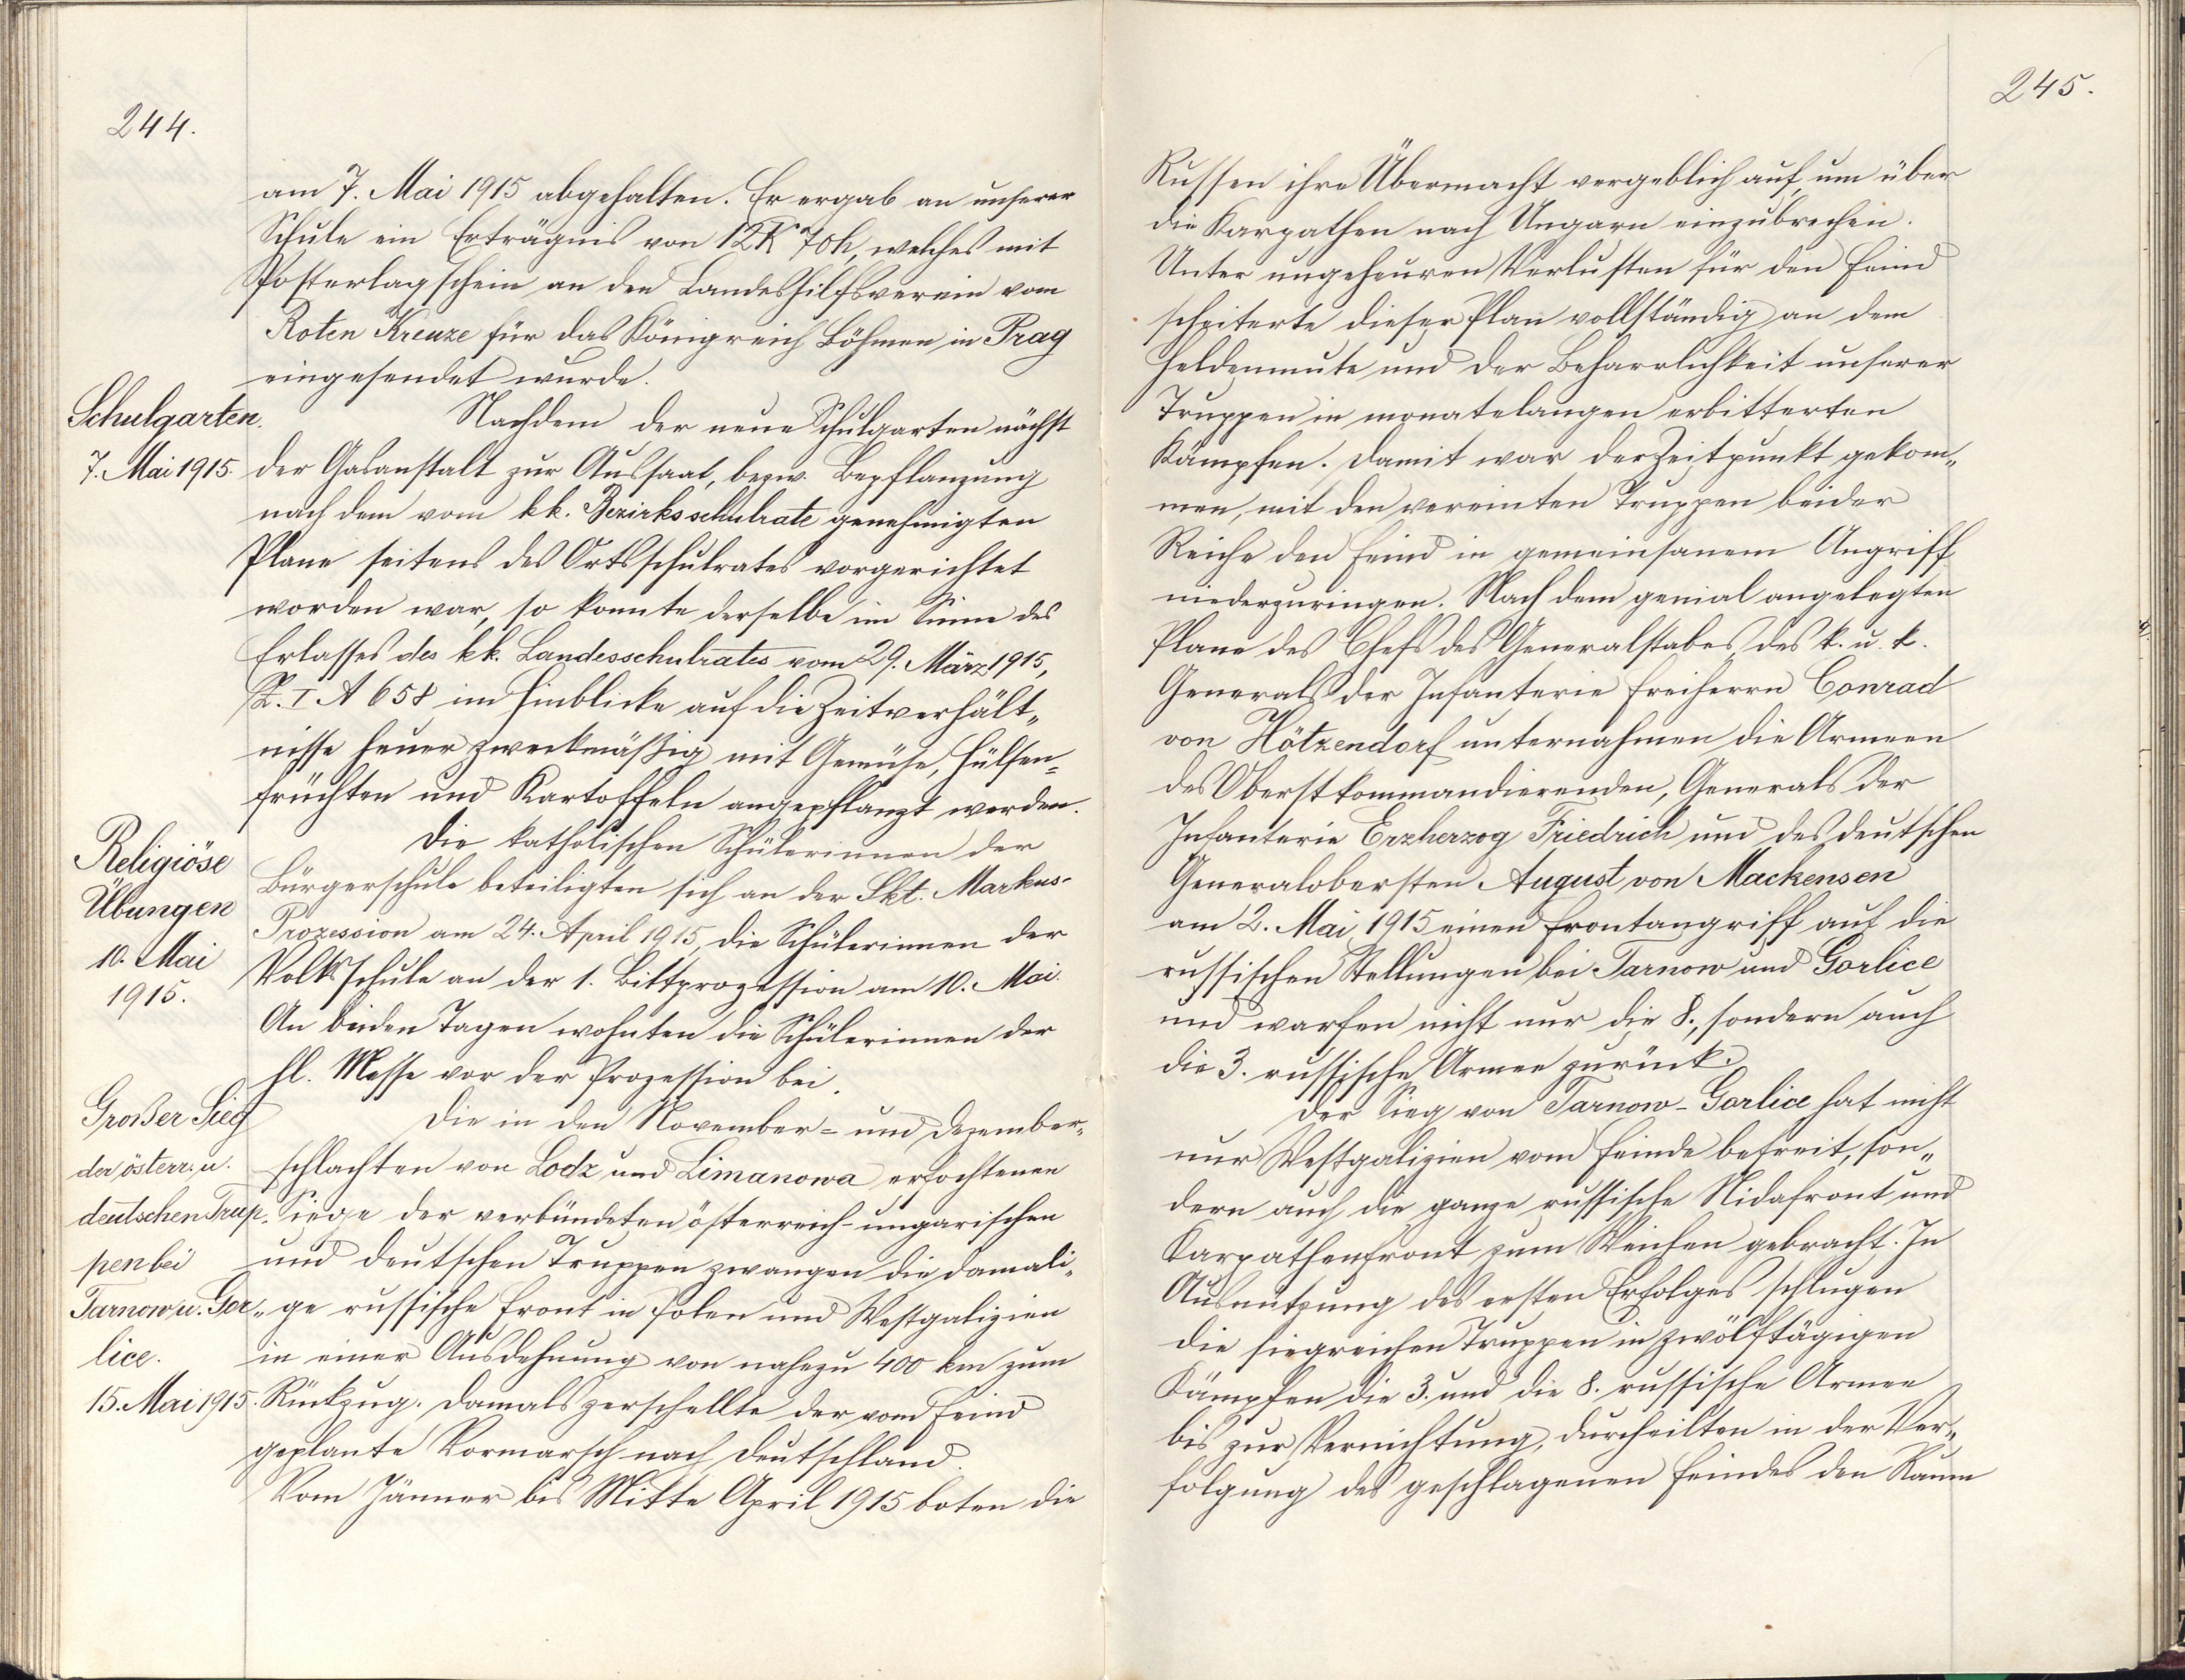 244.
am 7. Mai 1915 abgehalten. Er ergab an unserer
Schule ein Erträgnis von 12 K 70 h, welches mit
Posterlagschein an den Landeshilfsverein vom
Roten Kreuze für das Königreich Böhmen in Prag
eingesendet wurde.
Schulgarten.
7. Mai 1915.
Nachdem der neue Schulgarten nächst
der Gasanstalt zur Aussaat, bezw. Bepflanzung
nach dem vom kk. Bezirksschulrate genehmigten
Plane seitens des Ortsschulrates vorgerichtet
worden war, so konnte derselbe im Sinne des
Erlasses des kk. Landesschulrates vom 29. März 1915,
Z. I A 658 im Hinblicke auf die Zeitverhält„
nisse heuer zweckmäßig mit Gemüse, Hülsen=
früchten und Kartoffeln angepflanzt werden.
Religiöse
Übungen
10. Mai
1915.
Die katholischen Schülerinnen der
Bürgerschule beteiligten sich an der Skt. Markus-
Prozession am 24. April 1915, die Schülerinnen der
Volksschule an der 1. Bittprozession am 10. Mai.
An beiden Tagen wohnten die Schülerinnen der
hl. Messe vor der Prozession bei.
Großer Sieg
der österr. u.
deutschen Trup„
pen bei
Tarnow u. Gor„
lice.
15. Mai 1915.
Die in den November= und Dezember„
schlachten von Lodz und Limanowa erfochtenen
Siege der verbündeten österreich-ungarischen
und deutschen Truppen zwangen die damali„
ge russische Front in Polen und Westgalizien
in einer Ausdehnung von nahezu 400 km zum
Rückzug. Damals zerschellte der vom Feind
geplante Vormarsch nach Deutschland.
Vom Jänner bis Mitte April 1915 boten die
245.
Russen ihre Übermacht vergeblich auf, um über
die Karpathen nach Ungarn einzubrechen.
Unter ungeheuren Verlusten für den Feind
scheiterte dieser Plan vollständig an dem
Heldenmute und der Beharrlichkeit unserer
Truppen in monatelangen erbitterten
Kämpfen. Damit war der Zeitpunkt gekom„
men, mit den vereinten Truppen beider
Reiche den Feind in gemeinsanem Angriff
niederzuringen. Nach dem genial angelegten
Plane des Chefs des Generalstabes, des k. u. k.
Generals der Infanterie Freiherrn Conrad
von Hötzendorf unternahmen die Armeen
des Oberstkommandierenden, Generals der
Infanterie Erzherzog Friedrich und des deutschen
Generalobersten August von Mackensen
am 2. Mai 1915 einen Frontangriff auf die
russischen Stellungen bei Tarnow und Gorlice
und warfen nicht nur die 8., sondern auch
die 3. russische Armee zurück.
Der Sieg von Tarnow-Gorlice hat nicht
nur Westgalizien vom Feinde befreit, son„
dern auch die ganze russische Nidafront und
Karpathenfront zum Weichen gebracht. In
Ausnützung des ersten Erfolges schlugen
die siegreichen Truppen in zwölftägigen
Kämpfen die 3. und die 8. russische Armee
bis zur Vernichtung, durcheilten in der Ver„
folgung des geschlagenen Feindes den Raum